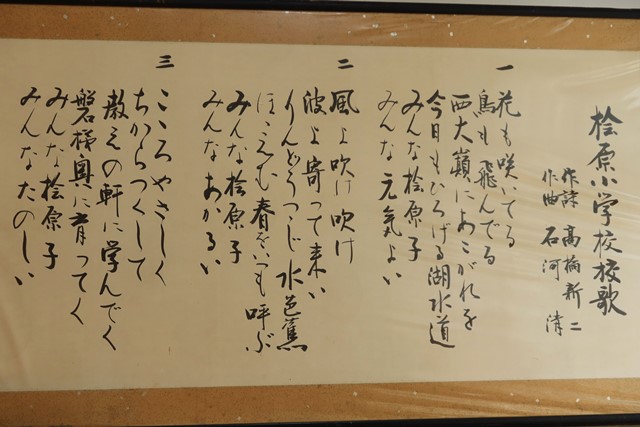 桧原小学校校歌
作詩 高橋新二
作曲 石河清
一
花も咲いてる
鳥も飛んでる
西大巓にあこがれを
今日もひろげる湖水道
みんな桧原子
みんな元気よい
二
風よ吹け吹け
波よ寄って来い
りんどうつつじ水芭蕉
ほほえむ春をいつも呼ぶ
みんな桧原子
みんなあかるい
三
こころやさしく
ちからつくして
教えの軒に学んでく
磐梯奥に育ってく
みんな桧原子
みんなたのしい